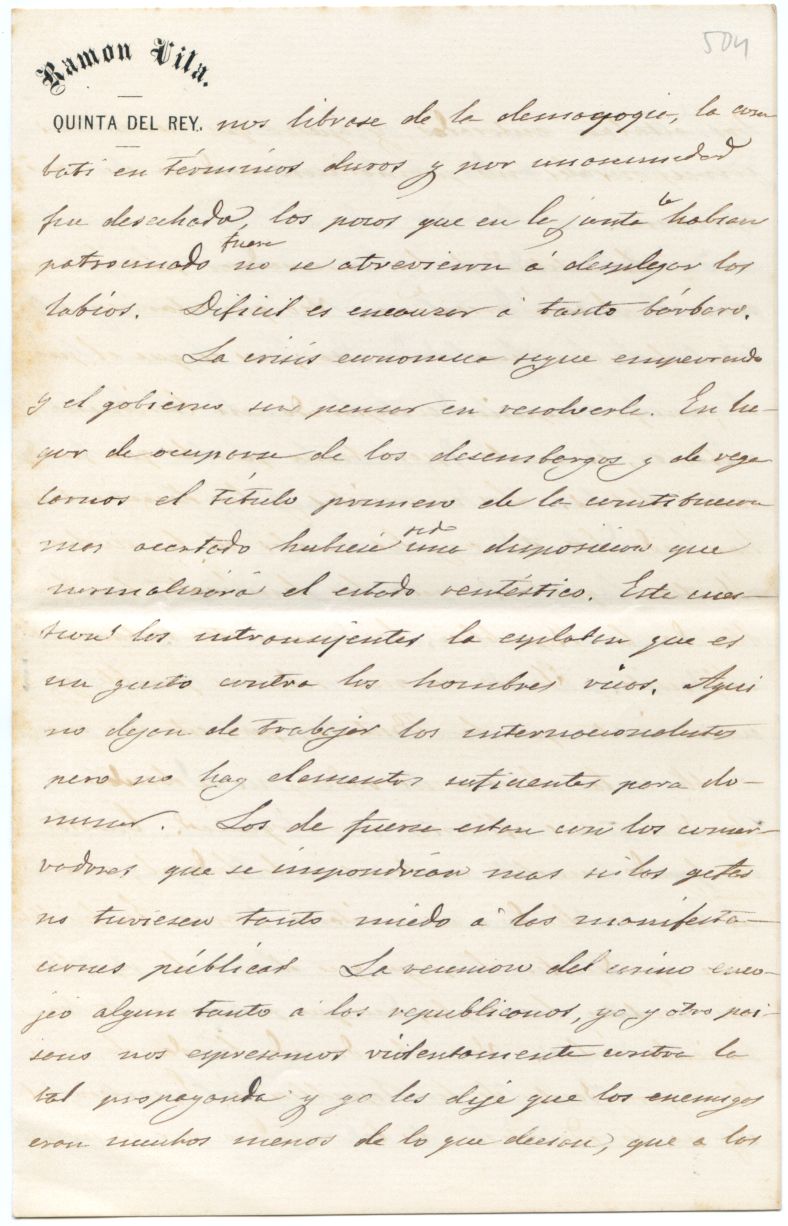 504
Ramon Vila.
QUINTA DEL REY.
nos librase de la demagogia, la com
bati en términos duros y por unanimidad
fue desechada, los pocos que en la junta la habian
patrocinado fuera no se atrevieron á desplegar los
labios. Dificil es encauzar á tanto bárbaro.
La crisis economica sigue empeorando
y el gobierno sin pensar en resolverla. En lu-
gar de ocuparse de los desembargos y de rega
larnos el título primero de la constitucion
mas acertado hubiese sido una disposicion que
normalizára el estado rentístico. Esta cues-
tion los intransijentes la esplotan que es
un gusto contra los hombres ricos. Aqui
no dejan de trabajar los internacionalistas
pero no hay elementos suficientes para do-
minar. Los de fuerza estan con los conser-
vadores que se impondrian mas si los gefes
no tuviesen tanto miedo á las manifesta-
ciones públicas La reunion del casino enco-
jió algun tanto á los republicanos, yo y otro pai-
sano nos espresamos violentamente contra la
tal propaganda y yo les dije que los enemigos
eran muchos menos de lo que decian, que a los